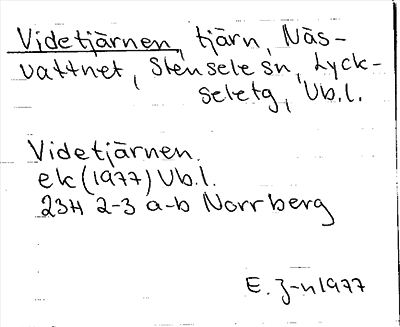 Videtjärnen, tjärn, Näs-
vattnet, Stensele sn, Lyck-
seletg, Vb.l.
Videtjärnen.
ek (1977) Vb.l.
23H 2-3 a-b Norrberg
E. J-n 1977